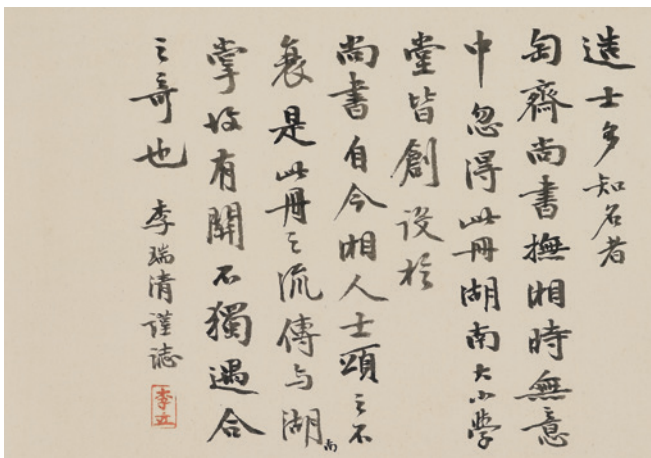 造士多知名者
匋齋尚書撫湘時無意
中忽得此冊湖南大小學
堂皆創設於
尚書自今湘人士頌之不
衰是此冊之流傳与湖南
掌故有關不獨遇合
之奇也 李瑞清謹誌